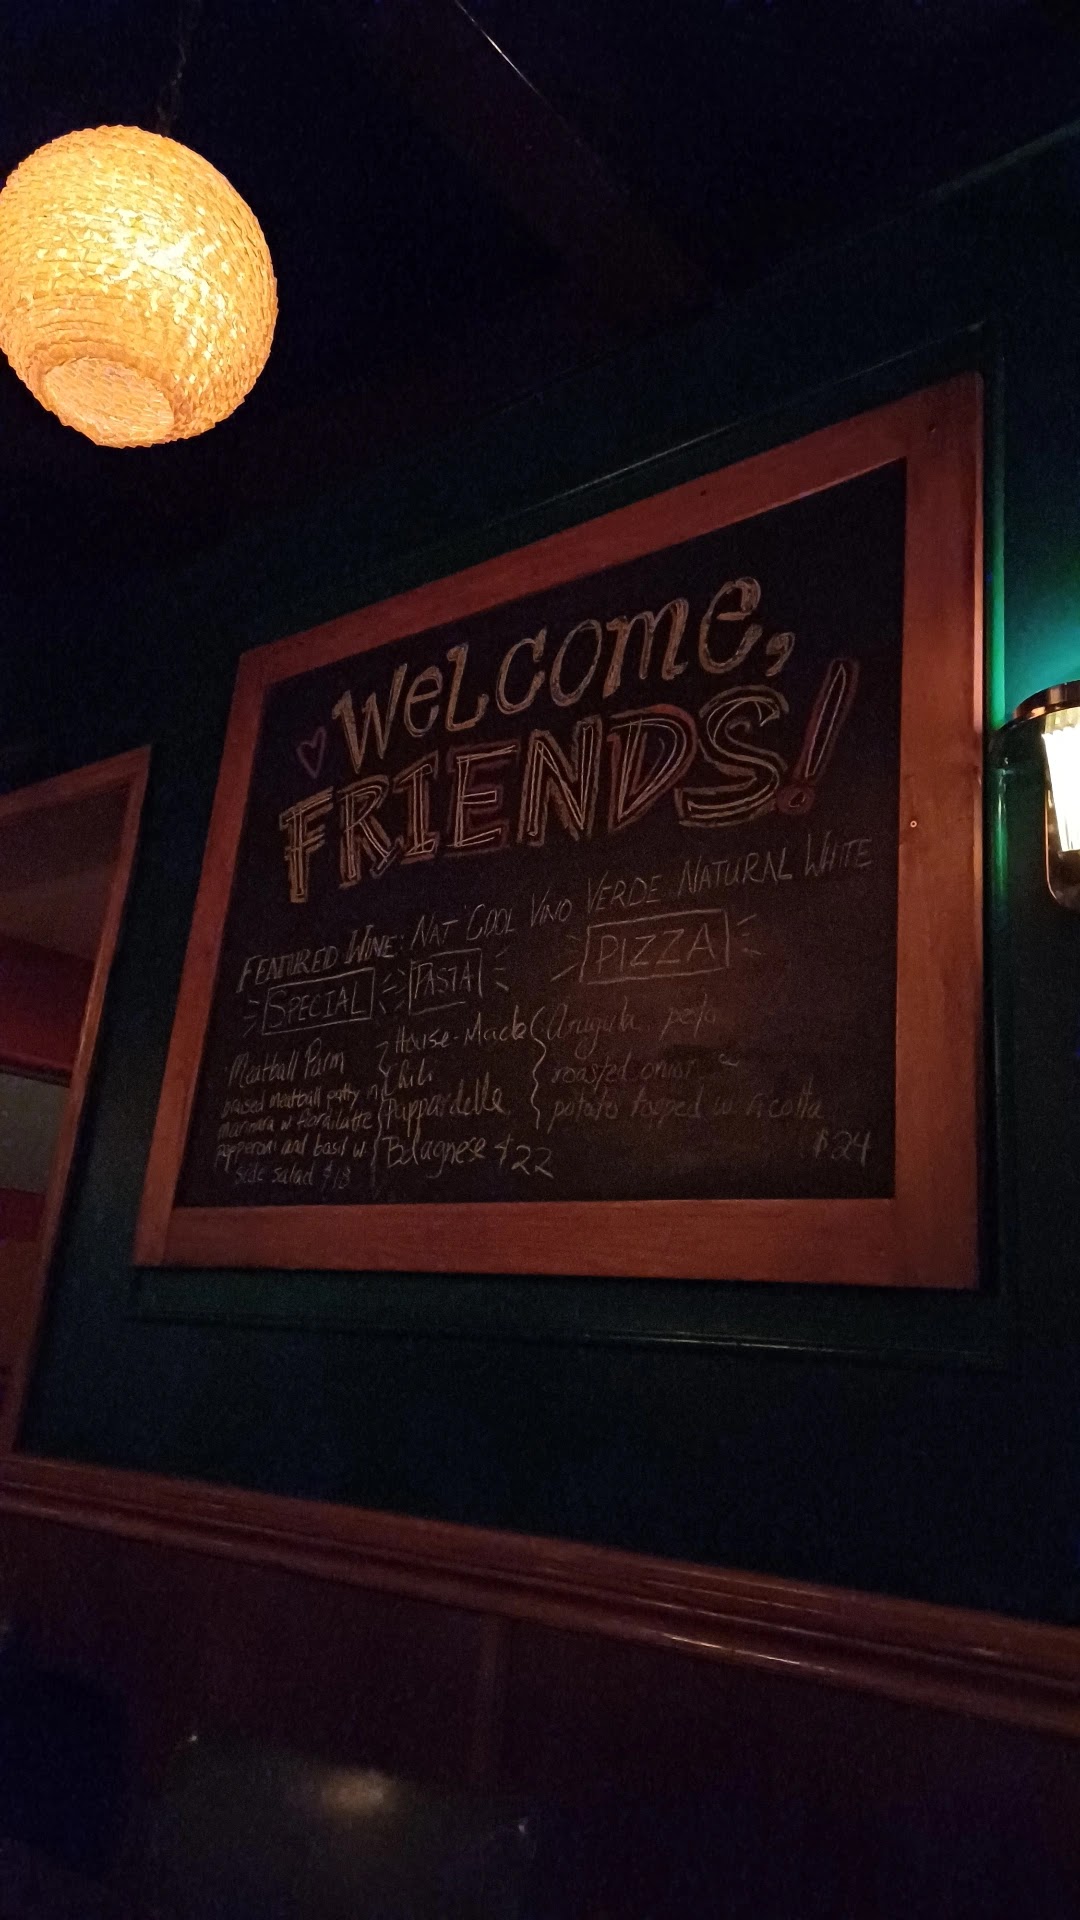 WELCOME,
FRIENDS!
FEATURED WINE: NAT'COOL VINO VERDE NATURAL WHITE
SPECIAL
Meatball Parm
braised meatball patty in
marinara w fior di latte
pepperoni and basil w.
side salad $18
PASTA
House-Made
Chili
Pappardelle
Bolagnese $22
PIZZA
Arugula, pesto
roasted onion
potato topped w ricotta
$24